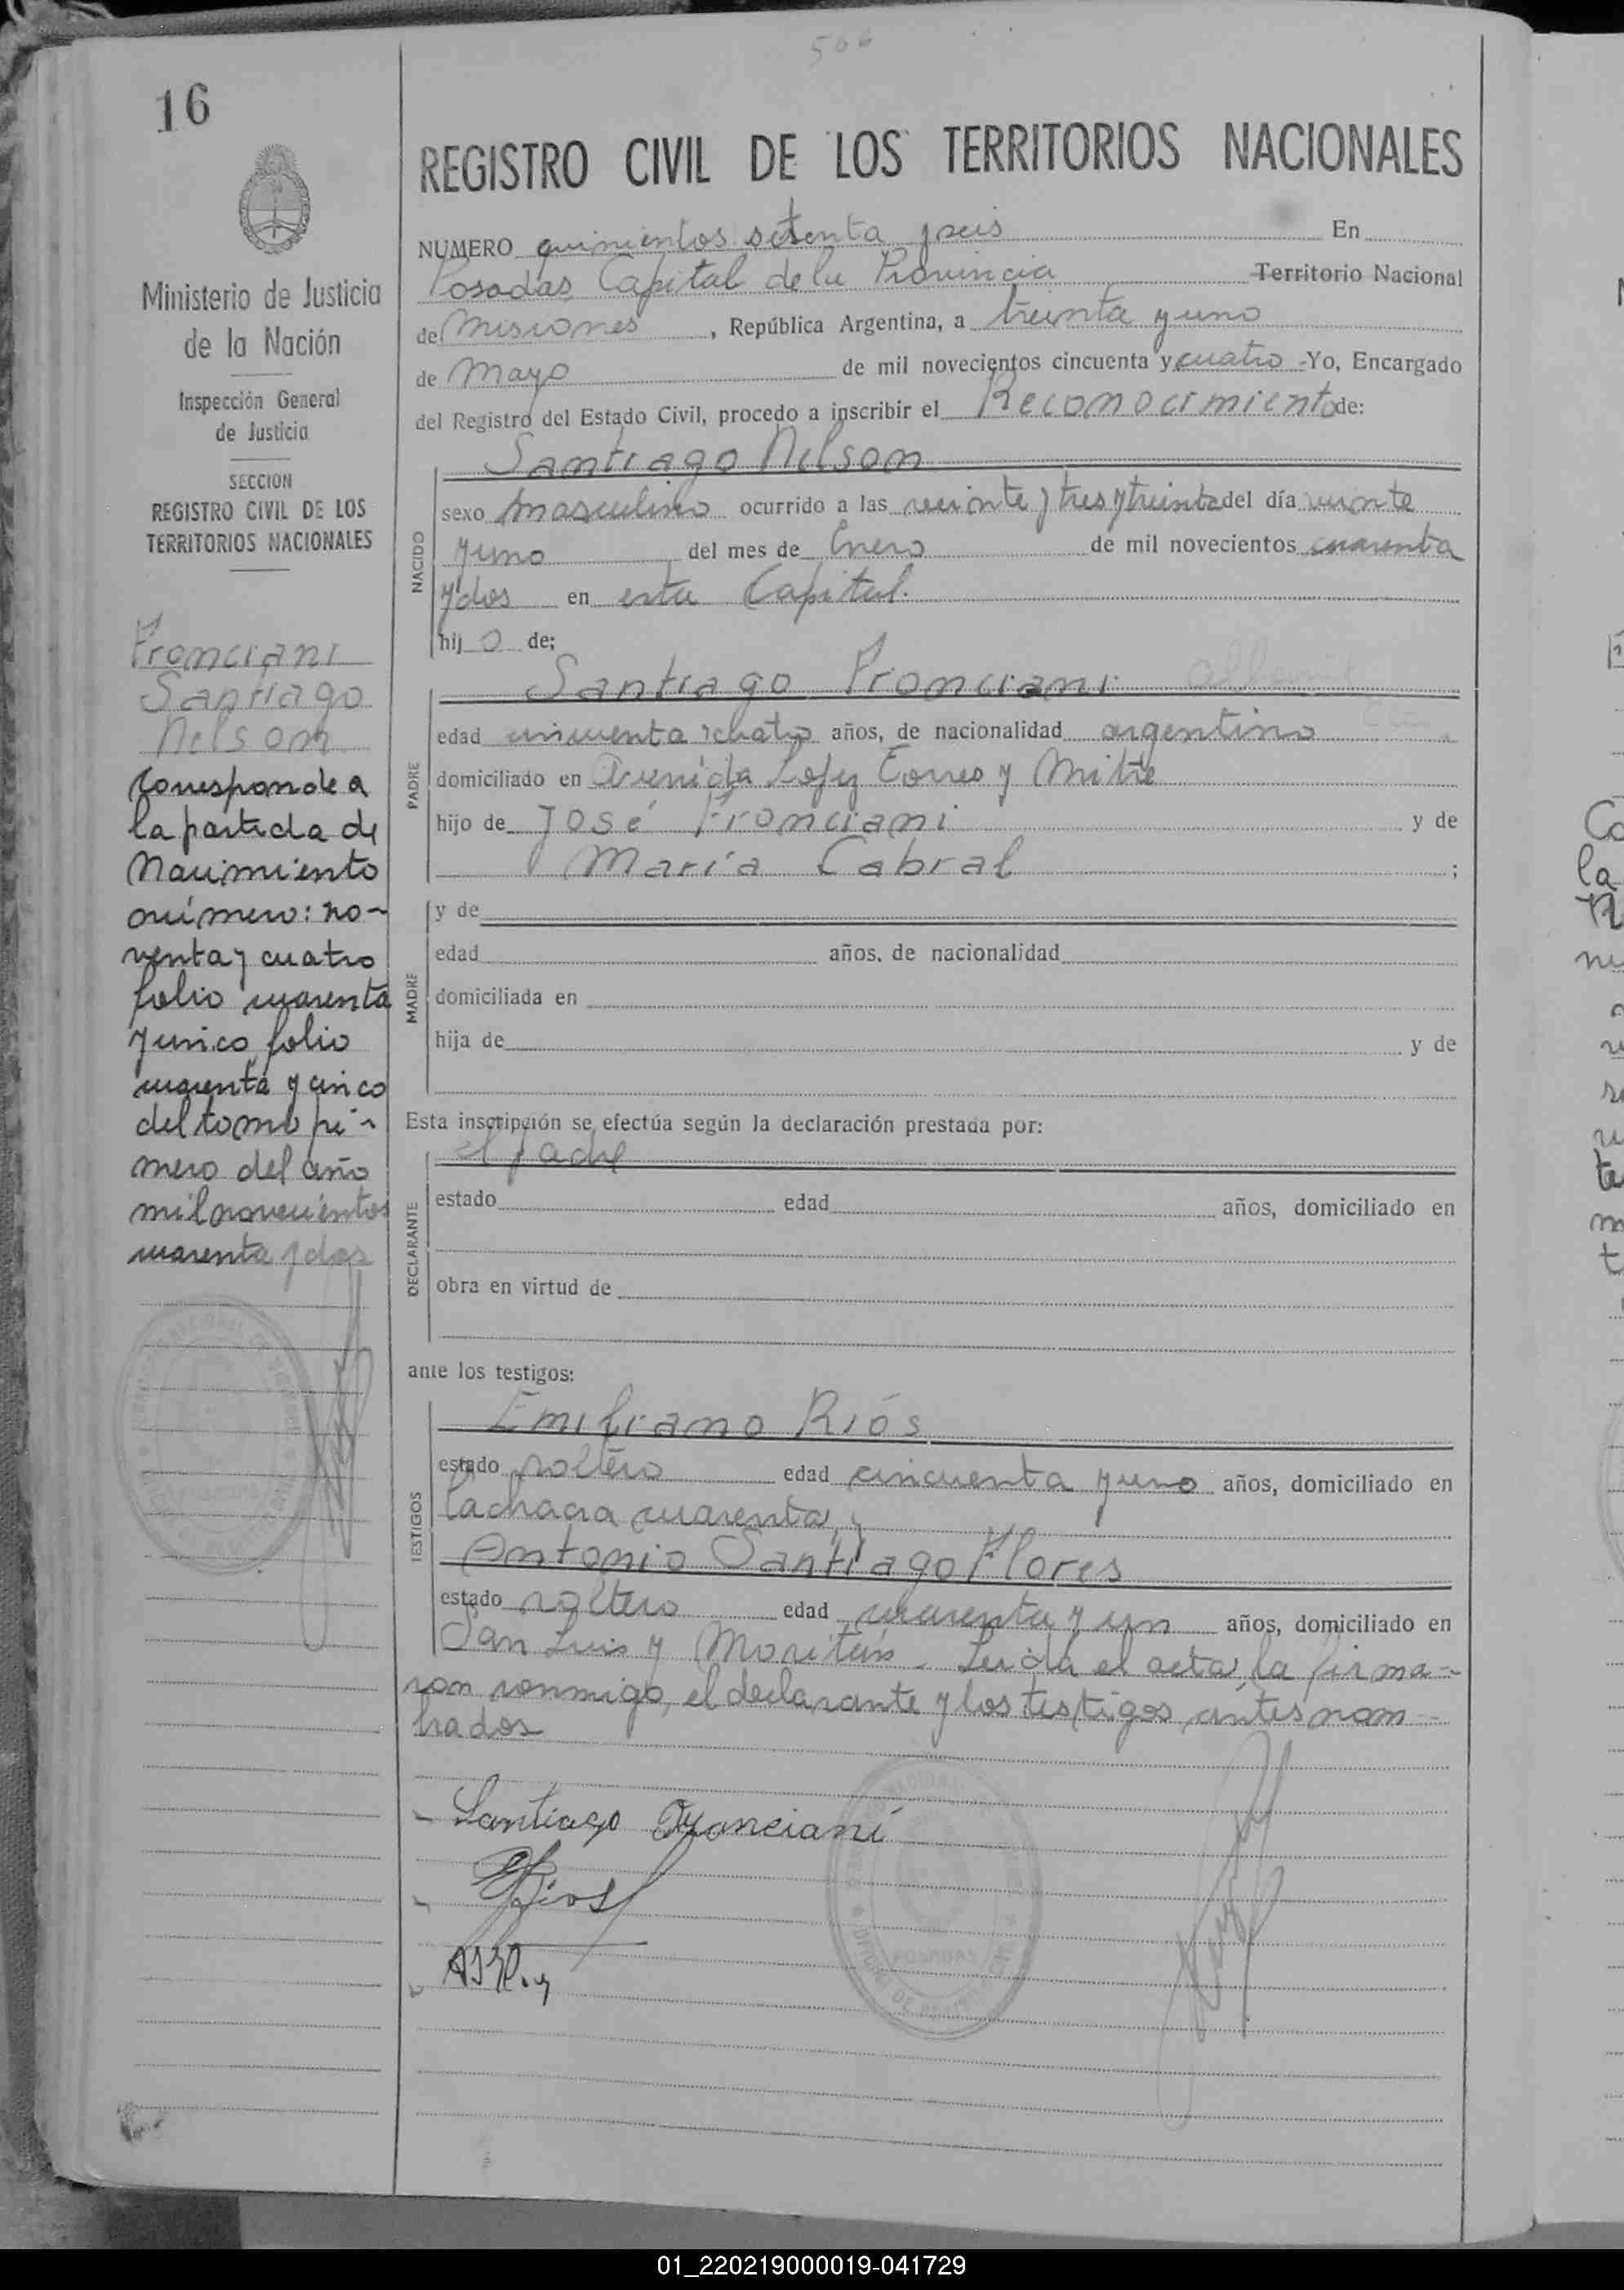 566
16
REGISTRO CIVIL DE LOS TERRITORIOS NACIONALES
Ministerio de Justicia
de la Nación
Inspección General
de Justicia
SECCION
REGISTRO CIVIL DE LOS
TERRITORIOS NACIONALES
Fronciani
Santiago
Nelson
Corresponde a
la partida de
Nacimiento
número: no-
venta y cuatro
folio cuarenta
y cinco folio
cuarenta y cinco
del tomo pri-
mero del año
mil novecientos
cuarenta y dos
NUMERO quinientos setenta y seis En
Posadas Capital de la Provincia Territorio Nacional
de Misiones, República Argentina, a treinta y uno
de Mayo de mil novecientos cincuenta y cuatro -Yo, Encargado
del Registro del Estado Civil, procedo a inscribir el Reconocimiento de:
Santiago Nelson
NACIDO
sexo masculino ocurrido a las veinte y tres y treinta del día veinte
y uno del mes de Enero de mil novecientos cuarenta
y dos en esta Capital.
hijo de;
Santiago Fronciani
PADRE
edad cincuenta y cuatro años, de nacionalidad argentino
domiciliado en Avenida Lopez Torres y Mitre
hijo de José Fronciani y de
María Cabral ;
MADRE
y de
edad años, de nacionalidad
domiciliada en
hija de y de
Esta inscripción se efectúa según la declaración prestada por:
el padre
DECLARANTE
estado edad años, domiciliado en
obra en virtud de
ante los testigos:
TESTIGOS
Emiliano Ríos
estado soltero edad cincuenta y uno años, domiciliado en
la chacra cuarenta, y
Antonio Santiago Flores
estado soltero edad cuarenta y un años, domiciliado en
San Luis y . Leida el acta, la firma-
ron conmigo, el declarante y los testigos antes nom-
brados
Santiago Fronciani
Rios
POSADAS
01_220219000019-041729